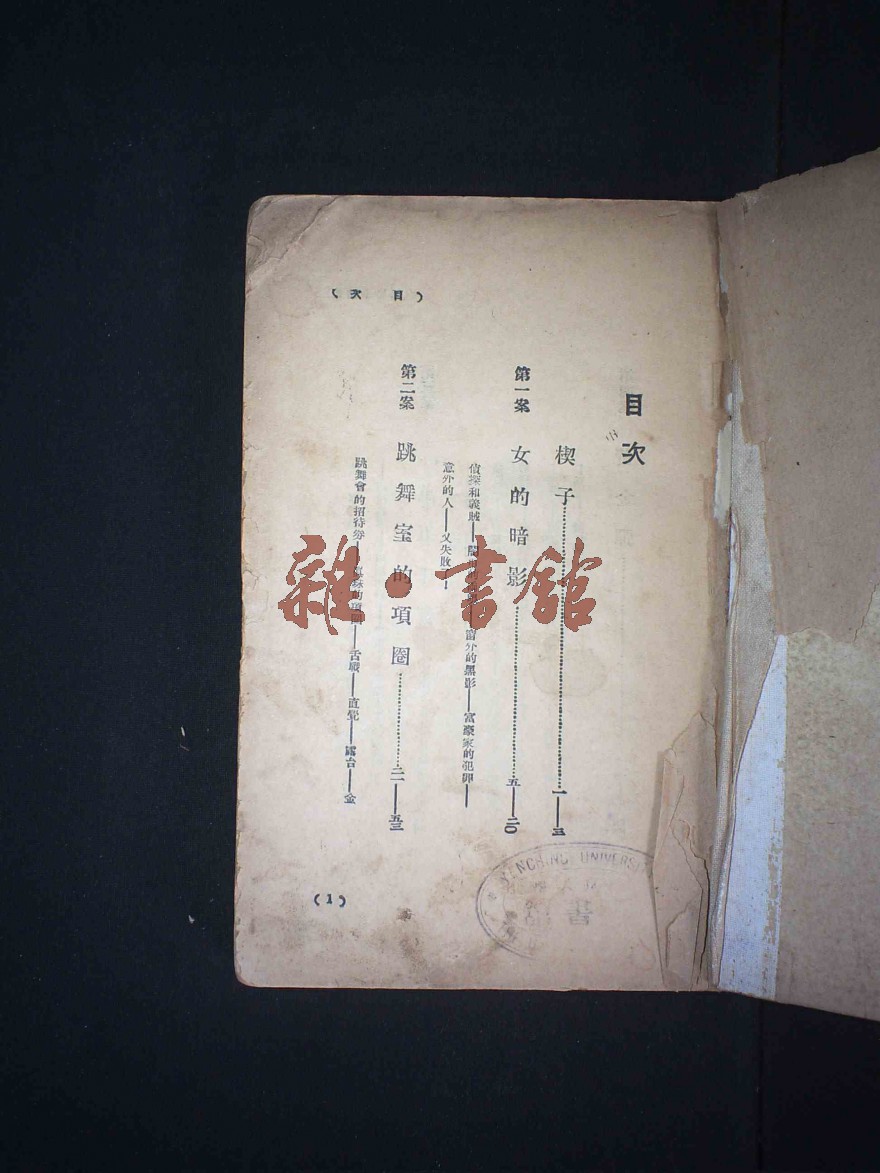 目次
楔子……一——三
第一案 女的暗影……五——二〇
偵探和義賊——窗外的黑影——富豪家的犯罪——
意外的人——又失敗了——
第二案 跳舞室的項圈……二一——五三
跳舞會的招待券——項圈——舌戰——直覺——露台——金
(目次)
(1)
雜·書館
YENCHING UNIVERSI
書